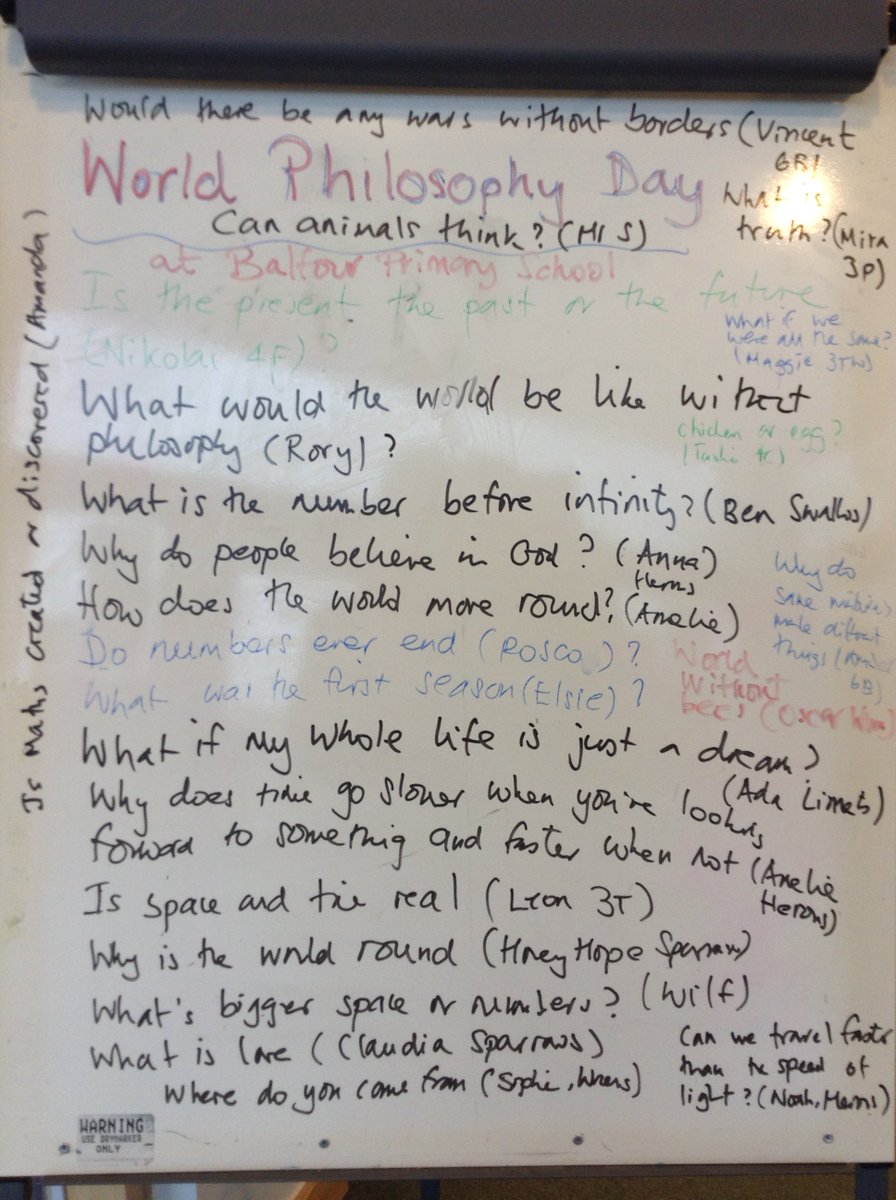 Would there be any wars without borders (Vincent
6R)
World Philosophy Day
What is
truth? (Mira
3P)
Can animals think? (Ms S)
at Balfour Primary School
Is the present the past or the future
(Nikolai 4F)?
What if we
were all the same?
(Maggie 3TW)
What would the world be like without
philosophy (Rory)?
chicken or egg?
What is the number before infinity? (Ben Swallows)
Why do people believe in God? (Anna)
Herons
How does the world move round? (Amelie)
Why do
same
make different
things
6B)
Do numbers ever end (Rosco)?
What was the first season (Elsie)?
World
Without
bees (Oscar
What if my whole life is just a dream?
(Ada Limets)
Why does time go slower when you're looking
forward to something and faster when not (Amelie
Herons)
Is space and time real (Leon 3T)
Why is the world round (Honey Hope Sparrows)
What's bigger space or numbers? (Wilf)
What is love (Claudia Sparrows)
Where do you come from (Sophie, Wrens)
Can we travel faster
than the speed of
light? (Noah, Herons)
Is Maths created or discovered (Amanda)
WARNING
USE DRYMARKER
ONLY